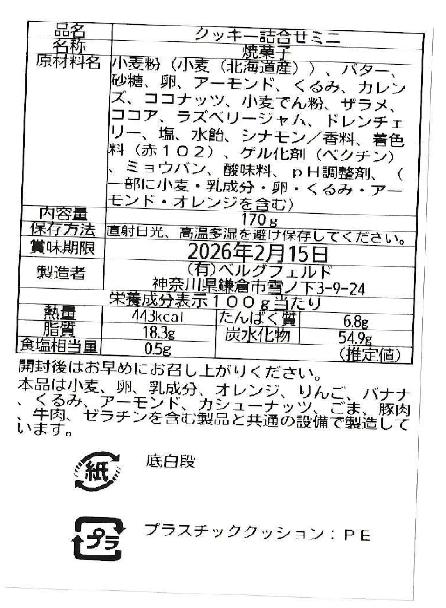 品名 クッキー詰合せミニ
名称 焼菓子
原材料名 小麦粉（小麦（北海道産））、バター、
砂糖、卵、アーモンド、くるみ、カレン
ズ、ココナッツ、小麦でん粉、ザラメ、
ココア、ラズベリージャム、ドレンチェ
リー、塩、水飴、シナモン／香料、着色
料（赤１０２）、ゲル化剤（ペクチン）
、ミョウバン、酸味料、ｐＨ調整剤、（
一部に小麦・乳成分・卵・くるみ・アー
モンド・オレンジを含む）
内容量 170ｇ
保存方法 直射日光、高温多湿を避け保存してください。
賞味期限 2026年2月15日
製造者 (有)ベルグフェルド
神奈川県鎌倉市雪ノ下3-9-24
栄養成分表示１００ｇ当たり
熱量 443kcal たんぱく質 6.8g
脂質 18.3g 炭水化物 54.9g
食塩相当量 0.5g （推定値）
開封後はお早めにお召し上がりください。
本品は小麦、卵、乳成分、オレンジ、りんご、バナナ
、くるみ、アーモンド、カシューナッツ、ごま、豚肉
、牛肉、ゼラチンを含む製品と共通の設備で製造して
います。
紙 底白段
プラ プラスチッククッション：ＰＥ